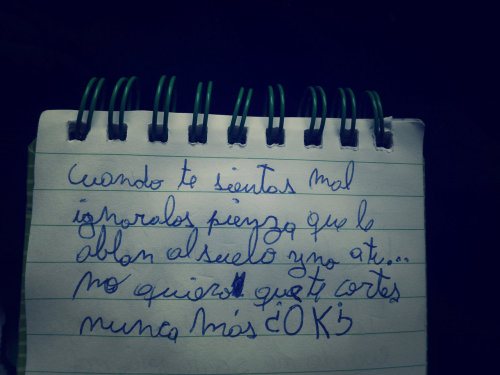 cuando te sientas mal
ignoralos pienza que le
ablan al suelo y no a ti...
no quiero que te cortes
nunca más ¿OK?